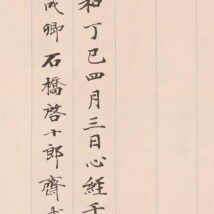 和丁巳四月三日心經千
卿石橋啓十郎齋